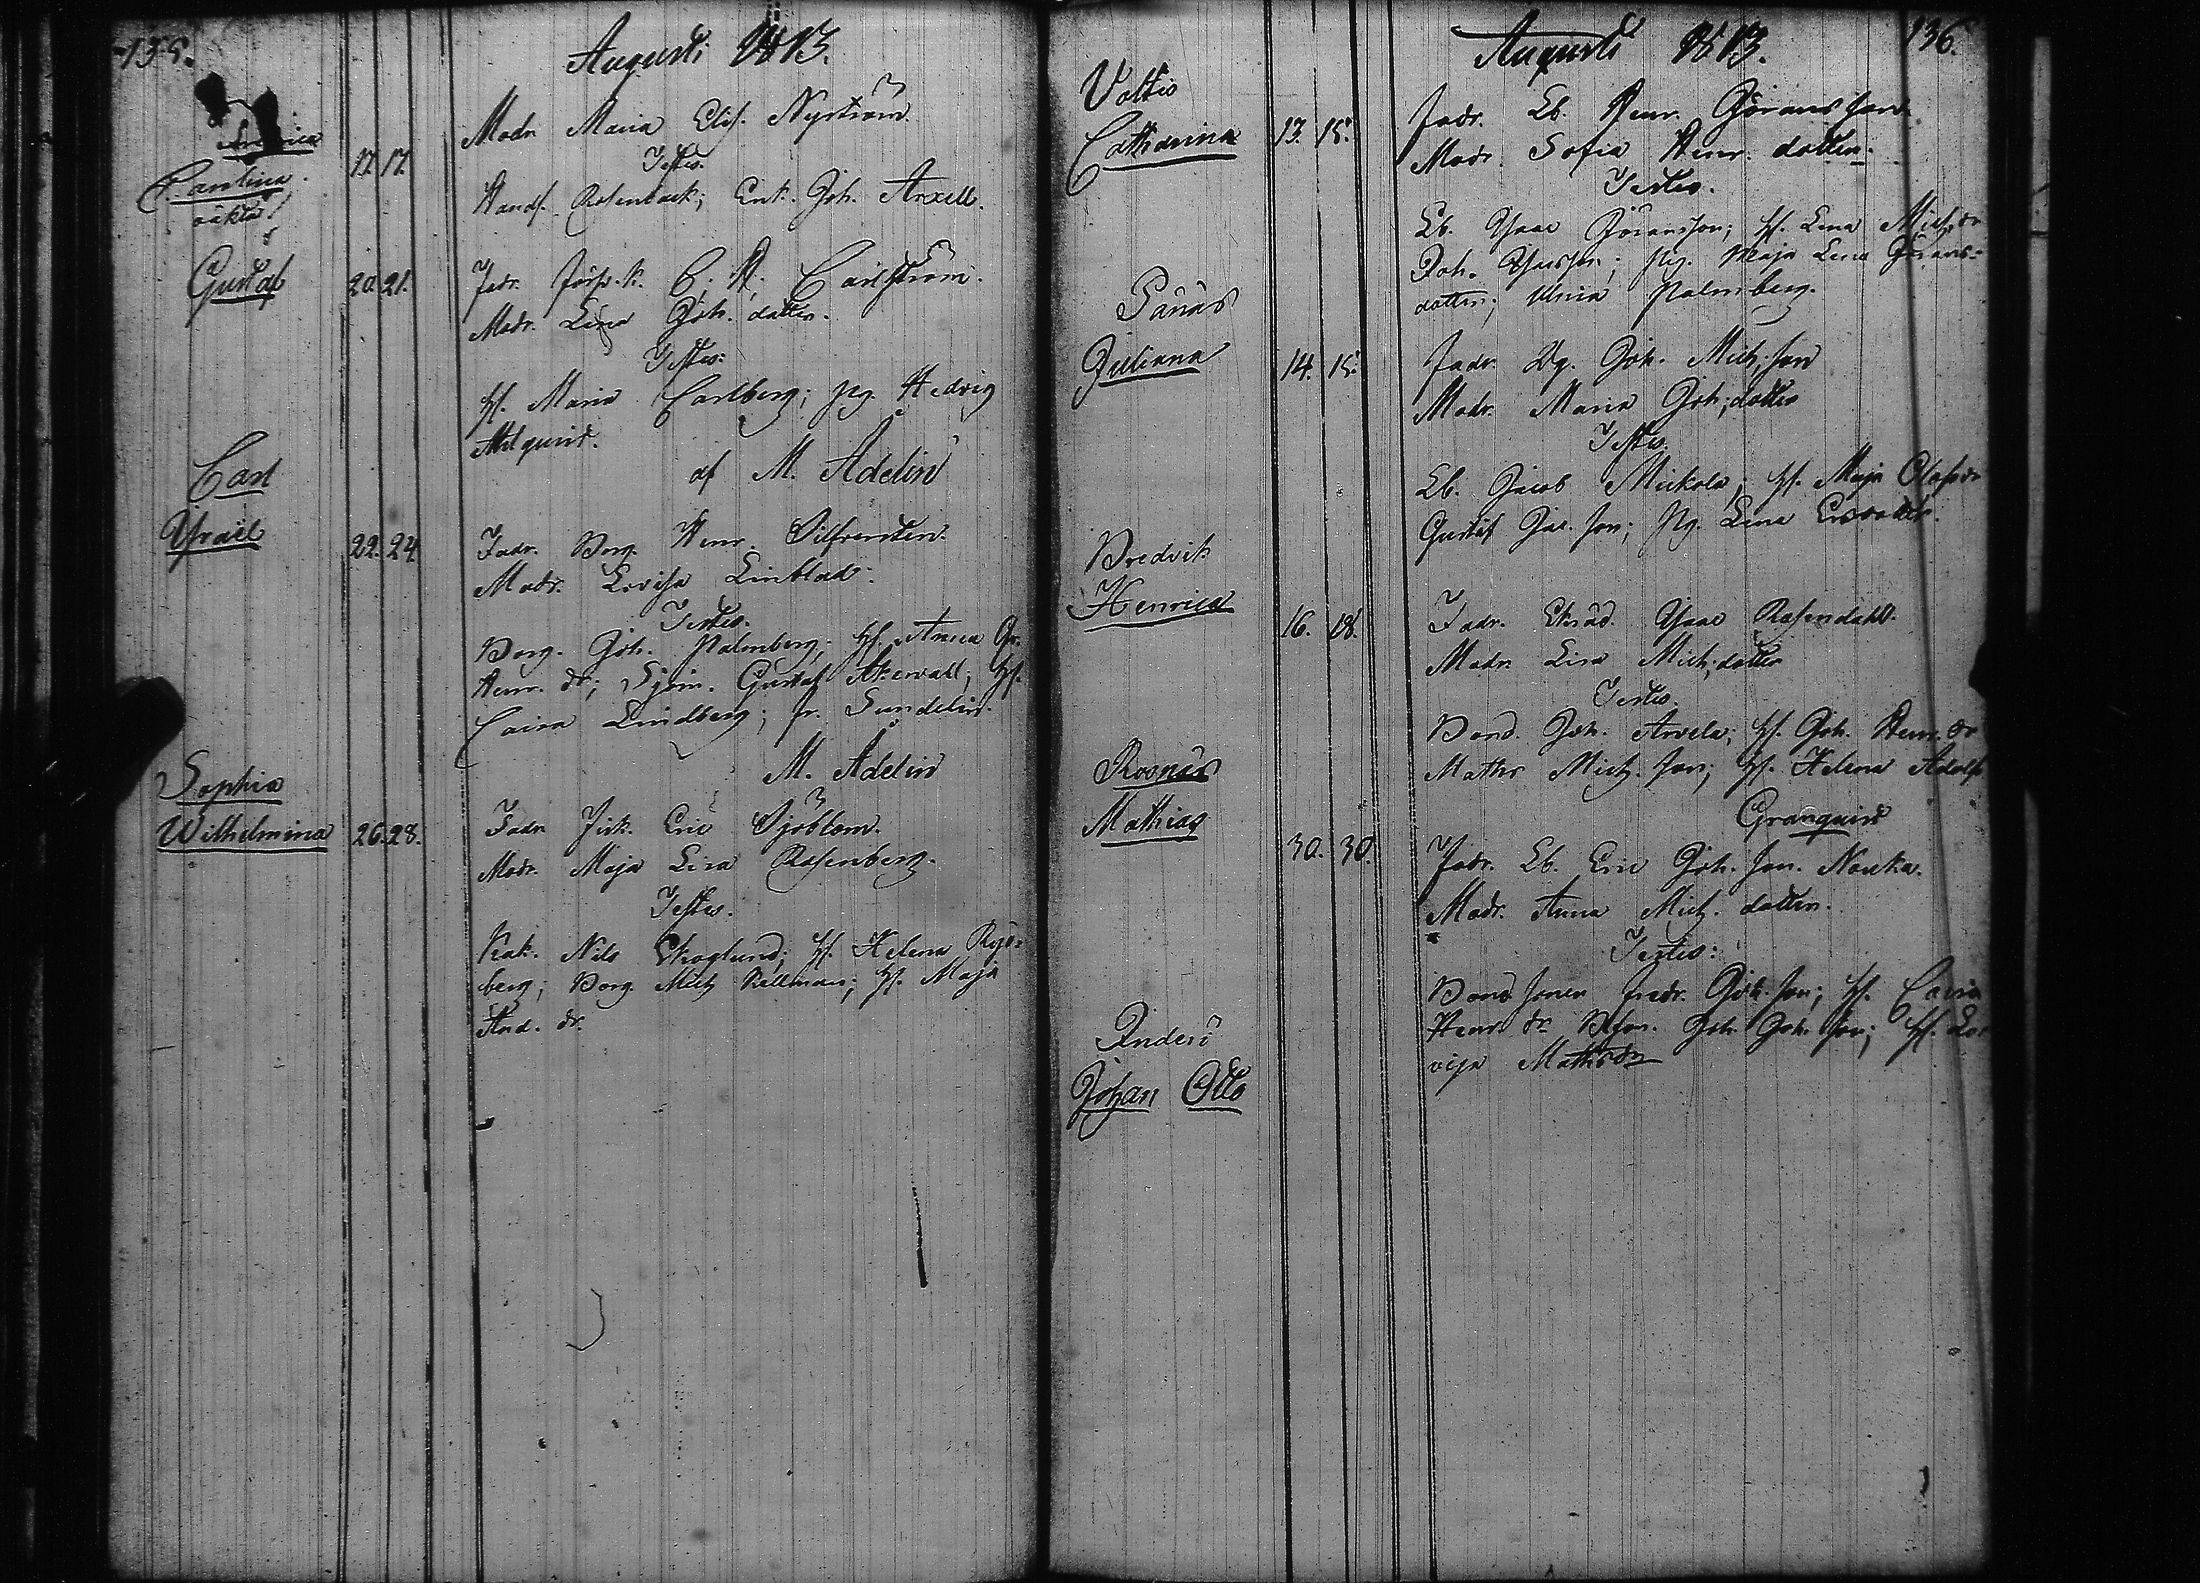 135.
Augusti 1813.
Carolina
17. 17.
Modr. Maria Elis. Nyström.
Testes.
Handl. Rosenback; Enk. Joh. Arxell.
Gustaf
20. 21.
Fadr. C. H. Carlström.
Modr. Lisa Joh. dotter.
Testes:
H. Maria Carlberg; pig. Hedvig
af M. Adelin
Carl
Ysraël
22. 24.
Fadr. Borg. Henr. Silfversten.
Modr. Lovisa Linblad.
Testes.
Borg. Joh. Palmberg; H. Anna
Henr. dr; Sjöm. Gustaf Åkervall; H.
Caisa Lindberg; fr. Sundelin.
M. Adelin
Sophia
Wilhelmina
26. 28.
Fadr. Fisk. Eric Sjöblom.
Modr. Maja Lisa Rosenberg.
Testes.
Nils Skoglund; H. Helena Ryd=
berg; Borg. Mich Kellman; H. Maja
And. dr.
136.
Augusti 1813.
Voltis
Catharina
13. 15.
Fadr. Lb. Henr. Göransson.
Modr. Sofia Henr. dotter.
Testes.
Lb. Ysaac Göransson; H. Lena Mich. dr
Joh. Ysacsson; pig. Maja Lena Görans=
dotter; Ulrica Palmberg.
Panas
Juliana
14. 15.
Fadr. Dg. Joh. Mich. son
Modr. Maria Joh. dotter
Testes.
Lb. Jacob Mickola; H. Maja Olofsdr
Gustaf Jac. son; Pig. Lena
Bredvik
Henrica
16. 18.
Fadr. Skräd. Ysaac Rosendahl.
Modr. Lisa Mich. dotter
Testes.
Bond. Joh. Arvela; H. Joh. Henr. dr
Maths Mich. son; H. Helena Adolf
Granquist
Rosnäs
Mathias
30. 30.
Fadr. Lb. Eric Joh. son Nouka.
Modr. Anna Mich. dotter.
Testes:
Bond sonen Fredr. Joh. son; H. Caisa
Henr. dr Joh. Joh. son; H. Lo
visa Mathsdr
Anderö
Johan Otto